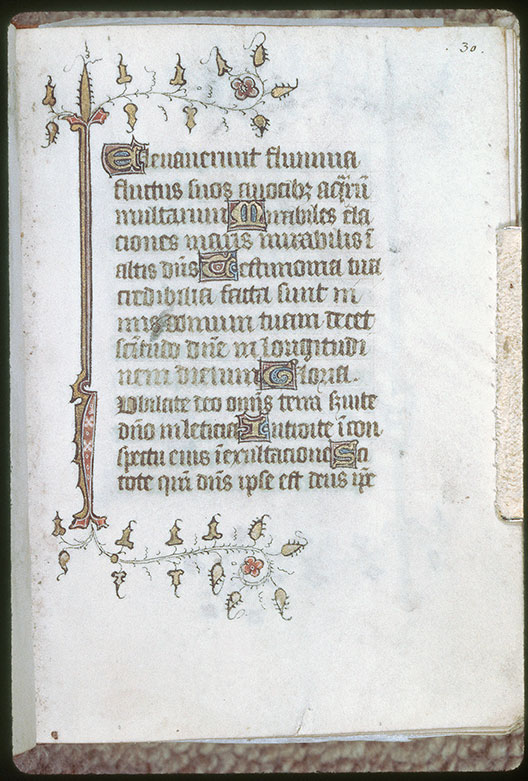 30.
Eleuauerunt flumina
fluctus suos auocibꝫ aq̄rū
multarum Mirabiles ela
ciones maris mirabilis ī
altis dn̄s Testimonia tua
credibilia facta sunt ni
mis domum tuam decet
sc̄itudo dn̄e in longitudi
nem dierum Gloria.
Vbilate deo omīs terra ẜuite
dn̄o in leticia Introite ī con
spectu eius ī exultacione Sci
tote qm̄ dn̄s ipse est deus ip̄e